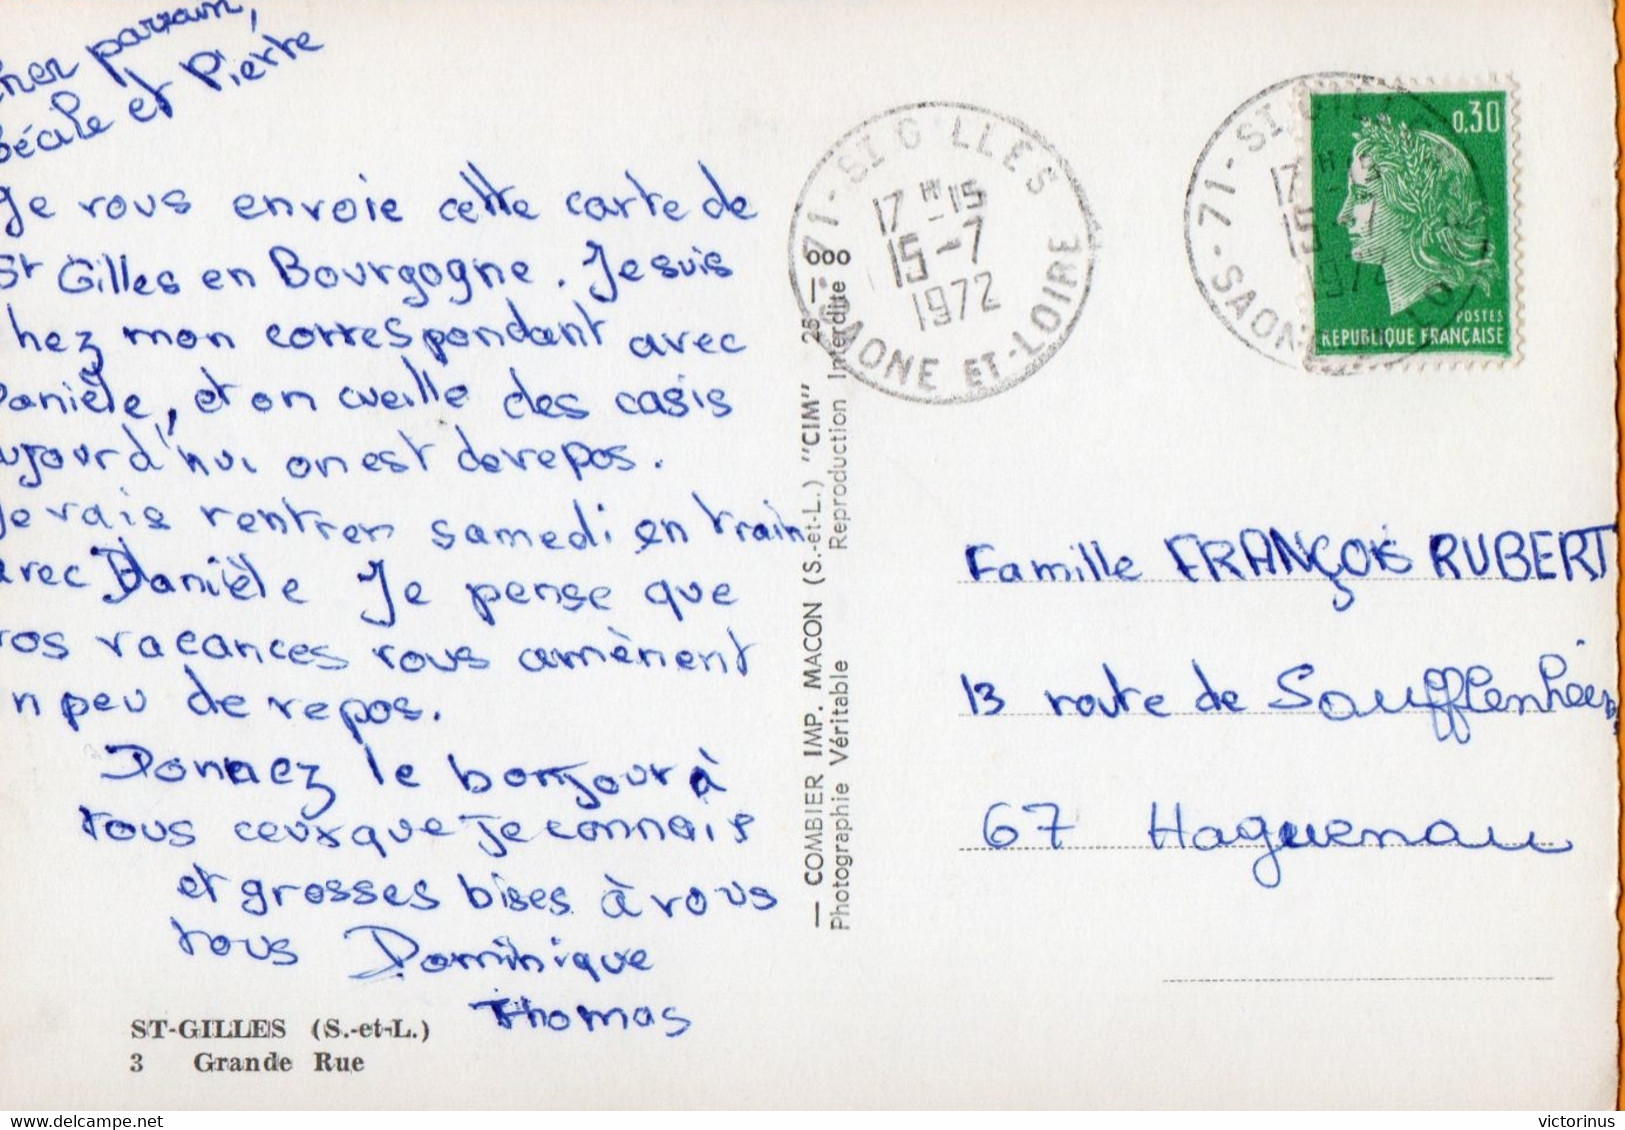 parrain,
et Pierre
Je vous envoie cette carte de
St Gilles en Bourgogne. Je suis
chez mon correspondant avec
Danièle, et on cueille des casis
aujourd'hui on est de repos.
Je vais rentrer samedi en train
avec Danièle Je pense que
vos vacances vous amènent
un peu de repos.
Donnez le bonjour à
tous ceux que je connais
et grosses bises à vous
tous Dominique
Thomas
ST-GILLES (S.-et-L.)
3 Grande Rue
— COMBIER IMP. MACON (S.-et-L.) "CIM" 25 —
Photographie Véritable Reproduction Interdite
71 - ST GILLES
17 H 15
15 - 7
1972
SAONE ET-LOIRE
71 - ST GILLES
17 H 15
15 - 7
1972
0,30
POSTES
REPUBLIQUE FRANÇAISE
Famille FRANÇOIS RUBERT
13 route de Soufflenheim
67 Haguenau
delcampe.net
victorinus